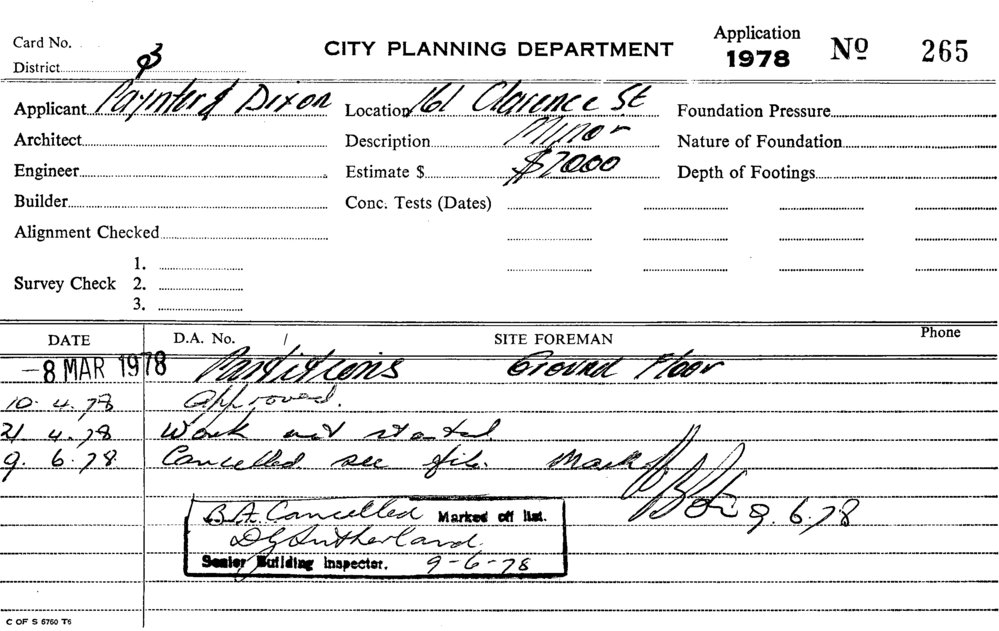 Card No. CITY PLANNING DEPARTMENT Application 1978 No 265
District
Applicant Paynter & Dixon Location 161 Clarence St Foundation Pressure
Architect Description Minor Nature of Foundation
Engineer Estimate $ $7000 Depth of Footings
Builder Conc. Tests (Dates)
Alignment Checked
Survey Check 1.
2.
3.
DATE D.A. No. / SITE FOREMAN Phone
-8 MAR 1978 Partitions Ground Floor
10. 4. 78 Approved.
21 4. 78 Work not started.
9. 6. 78 Cancelled see file. Mark off 9. 6. 78
B.A. Cancelled Marked off list.
D G Sutherland.
Senior Building Inspector. 9-6-78
C OF S 6760 T6